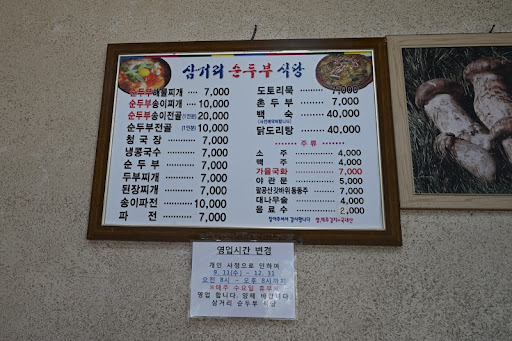 삼거리 순두부 식당
순두부해물찌개 .... 7,000
순두부송이찌개 ... 10,000
순두부송이전골(1인분) 20,000
순두부전골 (1인분) 10,000
청국장 ........ 7,000
냉콩국수 ...... 7,000
순두부 ........ 7,000
두부찌개 ...... 7,000
된장찌개 ...... 7,000
송이파전 ...... 10,000
파전 .......... 7,000
도토리묵 ...... 7,000
촌두부 ........ 7,000
백숙 .......... 40,000
닭도리탕 ...... 40,000
주류
소주 .......... 4,000
맥주 .......... 4,000
가을국화 ...... 7,000
야관문 ........ 5,000
팔공산갓바위동동주 .... 7,000
대나무술 ...... 4,000
음료수 ........ 2,000
찾아주셔서 감사합니다 쌀,배추김치=국내산
영업시간 변경
개인 사정으로 인하여
9. 11(수) - 12. 31
오전 8시 - 오후 8시까지
※매주 수요일 휴무※
영업 합니다. 양해 바랍니다
삼거리 순두부 식당